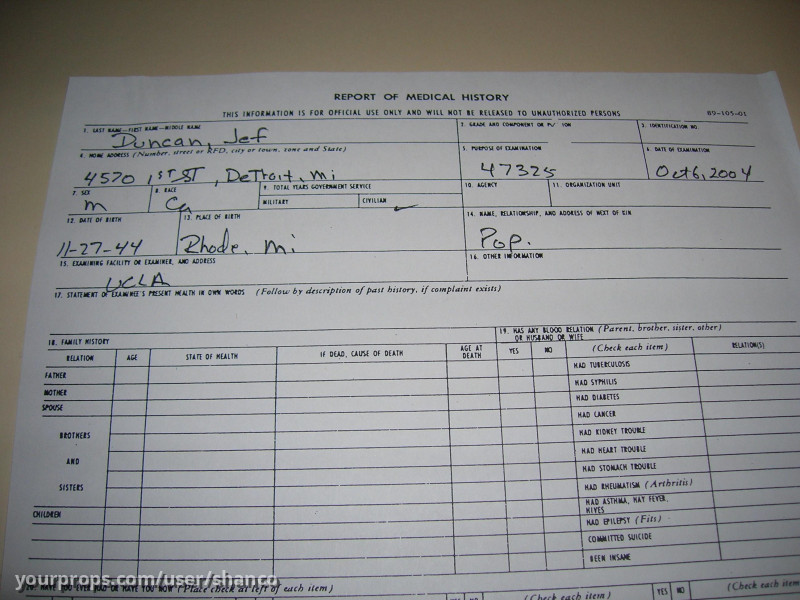 REPORT OF MEDICAL HISTORY
THIS INFORMATION IS FOR OFFICIAL USE ONLY AND WILL NOT BE RELEASED TO UNAUTHORIZED PERSONS 89-105-01
1. LAST NAME—FIRST NAME—MIDDLE NAME 2. GRADE AND COMPONENT OR 3. IDENTIFICATION NO.
Duncan, Jef
4. HOME ADDRESS (Number, street or RFD, city or town, zone and State) 5. PURPOSE OF EXAMINATION 6. DATE OF EXAMINATION
4570 1ST ST, Detroit, Mi 47325 Oct 6, 2004
7. SEX 8. RACE 9. TOTAL YEARS GOVERNMENT SERVICE 10. AGENCY 11. ORGANIZATION UNIT
MILITARY CIVILIAN
M Ca
12. DATE OF BIRTH 13. PLACE OF BIRTH 14. NAME, RELATIONSHIP, AND ADDRESS OF NEXT OF KIN
11-27-44 Rhode, Mi Pop.
15. EXAMINING FACILITY OR EXAMINER, AND ADDRESS 16. OTHER INFORMATION
UCLA
17. STATEMENT OF EXAMINEE'S PRESENT HEALTH IN OWN WORDS (Follow by description of past history, if complaint exists)
18. FAMILY HISTORY 19. HAS ANY BLOOD RELATION (Parent, brother, sister, other)
OR HUSBAND OR WIFE
RELATION AGE STATE OF HEALTH IF DEAD, CAUSE OF DEATH AGE AT DEATH YES NO (Check each item) RELATION(S)
FATHER HAD TUBERCULOSIS
MOTHER HAD SYPHILIS
SPOUSE HAD DIABETES
HAD CANCER
BROTHERS HAD KIDNEY TROUBLE
AND HAD HEART TROUBLE
HAD STOMACH TROUBLE
SISTERS HAD RHEUMATISM (Arthritis)
HAD ASTHMA, HAY FEVER, HIVES
CHILDREN HAD EPILEPSY (Fits)
COMMITTED SUICIDE
BEEN INSANE
yourprops.com/user/shanco
20. HAVE YOU EVER HAD OR HAVE YOU NOW (Place check at left of each item)
(Check each item) YES NO (Check each item)